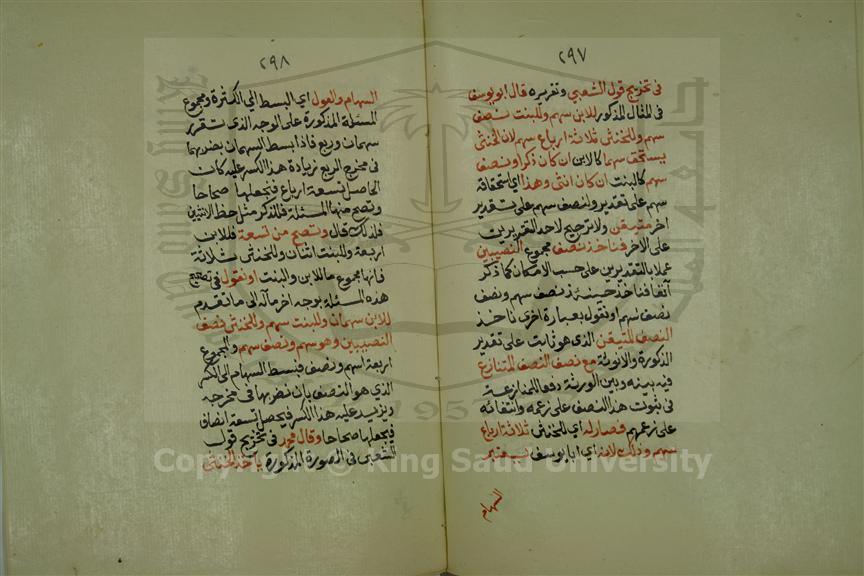 ٢٩٧
في تخريج قول الشعبي وتقريره قال ابو يوسف
في المثال المذكور للابن سهم وللبنت نصف
سهم وللخنثى ثلاثة ارباع سهم لان الخنثى
يستحق سهما كالابن ان كان ذكرا ونصف
سهم كالبنت ان كان انثى وهذا اي استحقاقه
سهم على تقدير ونصف سهم على تقدير
اخر متيقن ولا ترجيح لاحد التقديرين
على الاخر فناخذ نصف مجموع النصيبين
عملا بالتقديرين على حسب الامكان كما ذكر
آنفا فناخذ حينئذ نصف سهم ونصف
نصف سهم او نقول بعبارة اخرى ناخذ
النصف المتيقن الذي هو ثابت على تقدير
الذكورة والانوثة مع نصف النصف المتنازع
فيه بينه وبين الورثة دفعا للمنازعة
في ثبوت هذا النصف على زعمه وانتفائه
على زعمهم فصار له اي للخنثى ثلاثة ارباع
سهم وذلك لانه اي ابا يوسف يعتبر
السهام
٢٩٨
السهام والعول اي البسط الى الكثرة ومجموع
المسئلة المذكورة على الوجه الذي تقرر
سهمان وربع فاذا بسط السهمان بضربهما
في مخرج الربع بزيادة هذا الكسر عليه كان
الحاصل تسعة ارباع فنجعلها صحاحا
وتصح منها المسئلة فللذكر مثل حظ الانثيين
فلذلك قال وتصح من تسعة فللابن
اربعة وللبنت اثنان وللخنثى ثلاثة
فانها مجموع ما للابن والبنت او نقول في تصحيح
هذه المسئلة بوجه اخر مآله الى ما تقدم
للابن سهمان وللبنت سهم وللخنثى نصف
النصيبين وهو سهم ونصف سهم والمجموع
اربعة اسهم ونصف فبسط السهام الى الكسر
الذي هو النصف بان نضربها في مخرجه
ويزيد عليه هذا الكسر فيحصل تسعة انصاف
فيجعلها صحاحا وقال محمد في تخريج قول
الشعبي في الصورة المذكورة ياخذ الخنثى
Copyright © King Saud University
1957